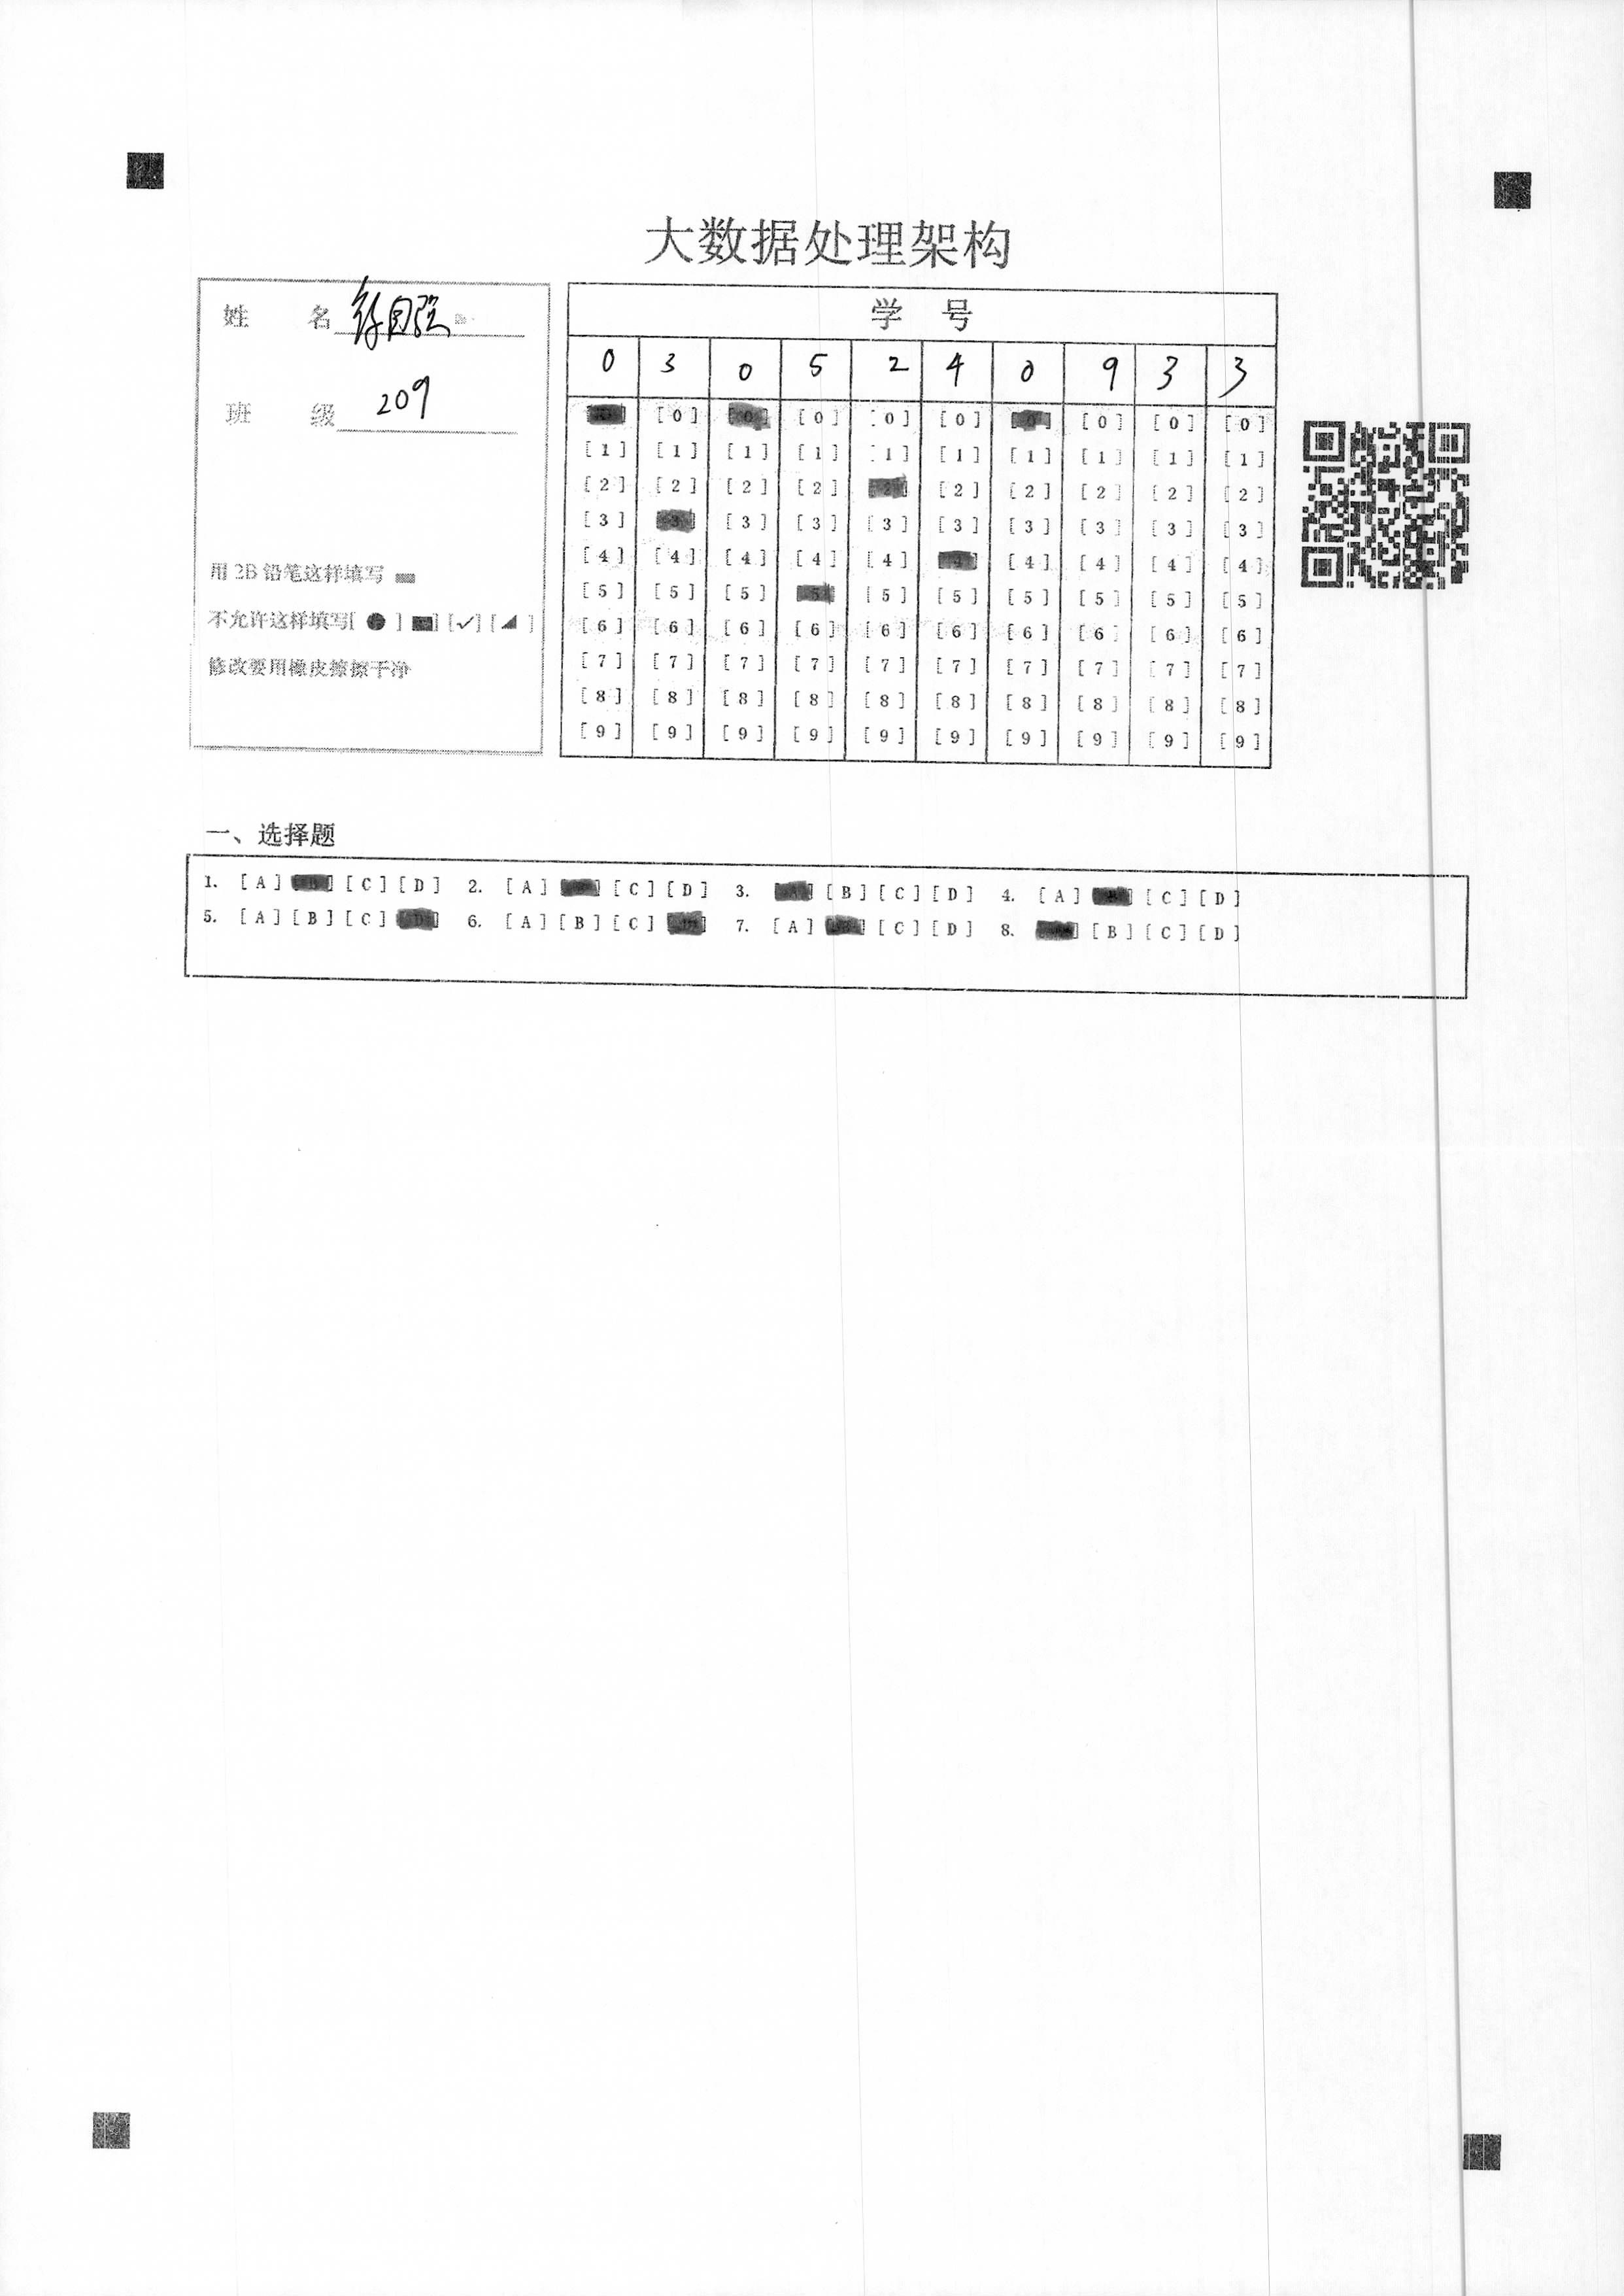 大数据处理架构
姓 名
班 级 209
用 2B 铅笔这样填写
不允许这样填写[ ● ] [■] [✓] [◢ ]
修改要用橡皮擦擦干净
学 号
0 3 0 5 2 4 0 9 3 3
[0] [0] [0] [0] [0] [0] [0]
[1] [1] [1] [1] [1] [1] [1] [1] [1] [1]
[2] [2] [2] [2] [2] [2] [2] [2] [2] [2]
[3] [3] [3] [3] [3] [3] [3] [3] [3] [3]
[4] [4] [4] [4] [4] [4] [4] [4] [4] [4]
[5] [5] [5] [5] [5] [5] [5] [5] [5] [5]
[6] [6] [6] [6] [6] [6] [6] [6] [6] [6]
[7] [7] [7] [7] [7] [7] [7] [7] [7] [7]
[8] [8] [8] [8] [8] [8] [8] [8] [8] [8]
[9] [9] [9] [9] [9] [9] [9] [9] [9] [9]
一、选择题
1. [A] [B] [C] [D] 2. [A] [C] [D] 3. [B] [C] [D] 4. [A] [B] [C] [D]
5. [A] [B] [C] [D] 6. [A] [B] [C] 7. [A] [C] [D] 8. [B] [C] [D]